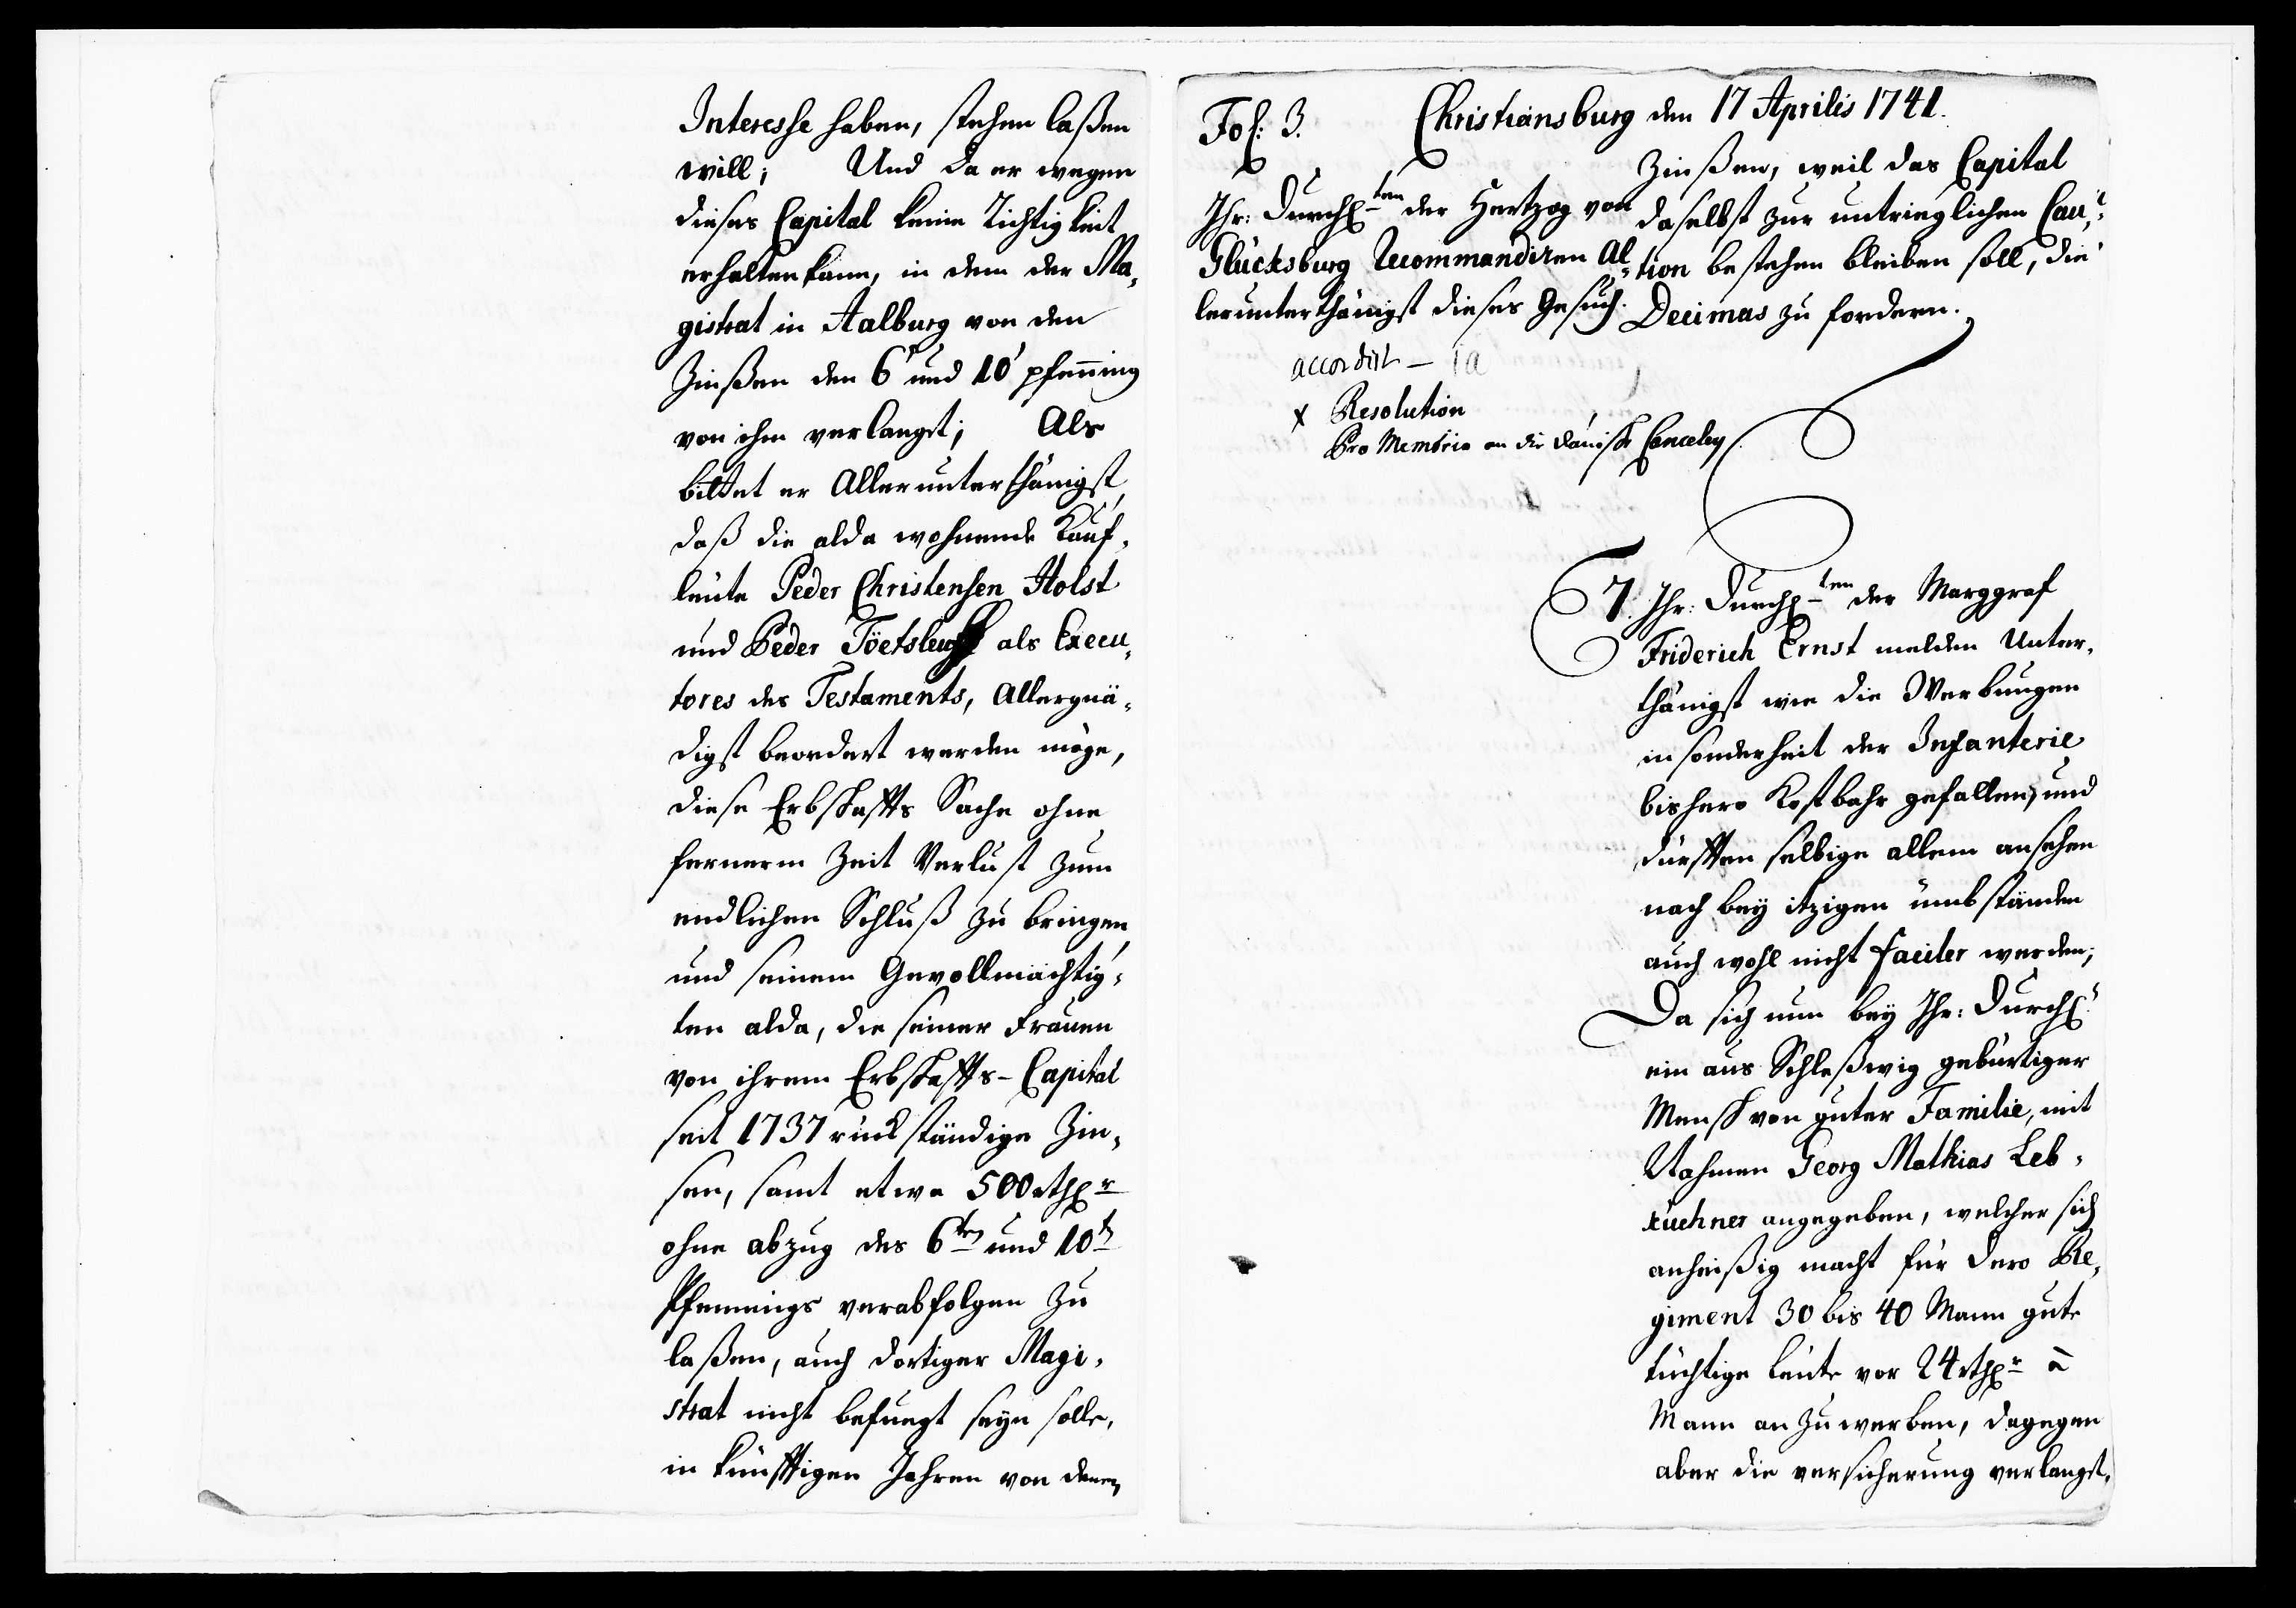 Interesse haben, stehen laßen
will; Und da er wegen
dieses Capital keine Richtigkeit
erhalten kann, in dem der Ma-
gistrat in Aalburg von den
Zinßen den 6' und 10' pfenning
von ihm verlanget; Als
bittet er Allerunterthänigst,
daß die alda wohnende Kauf-
leute Peder Christensen Holst
und Peder als Execu-
tores des Testaments, Allergnä-
digst beordert werden möge,
diese Erbschaffts Sache ohne
fernerm Zeit Verlust zum
endlichen Schluß zu bringen
und seinem Gevollmächtig-
ten alda, die seiner Frauen
von ihrem Erbschaffts-Capital
seit 1737 rückständige Zin-
sen, samt etwa 500 rthlr
ohne abzug des 6ten und 10t
Pfennings verabfolgen zu
laßen, auch dortiger Magi-
strat nicht befuegt seyn solle,
in künfftigen Jahren von denen
Fol: 3. Christiansburg den 17 Aprilis 1741.
Zinßen, weil das Capital
daselbst zur untrieglichen Cau-
tion bestehen bleiben soll, die
Decimas zu fordern.
Ihr: Durchlten der Hertzog von
Glücksburg Recommandiren Al-
lerunterthänigst dieses Gesuch.
accordirt
x Resolution
Pro Memoria an die dänische Canceley
7. Ihr: Durchlten der Marggraf
Friderich Ernst melden Unter-
thänigst wie die Werbungen
in sonderheit der Infanterie
bishero Kostbahr gefallen, und
dürfften selbige allem ansehen
nach bey itzigen ümbständen
auch wohl nicht faciler werden;
Da sich nun bey Ihr: Durchl:
ein aus Schleßwig gebürtiger
Mensch von guter Familie, mit
Nahmen Georg Mathias Leb-
küchner angegeben, welcher sich
anheißig macht für dero Re-
giment 30 bis 40 Mann gute
tüchtige Leute vor 24 rthlr à
Mann an zu werben, dagegen
aber die versicherung verlanget,